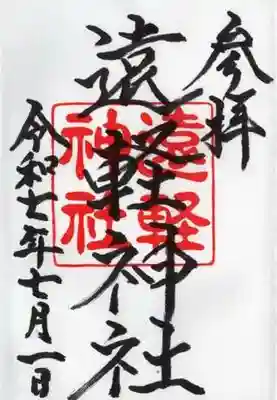 参拝
遠軽神社
遠軽
神社
令和七年七月一日